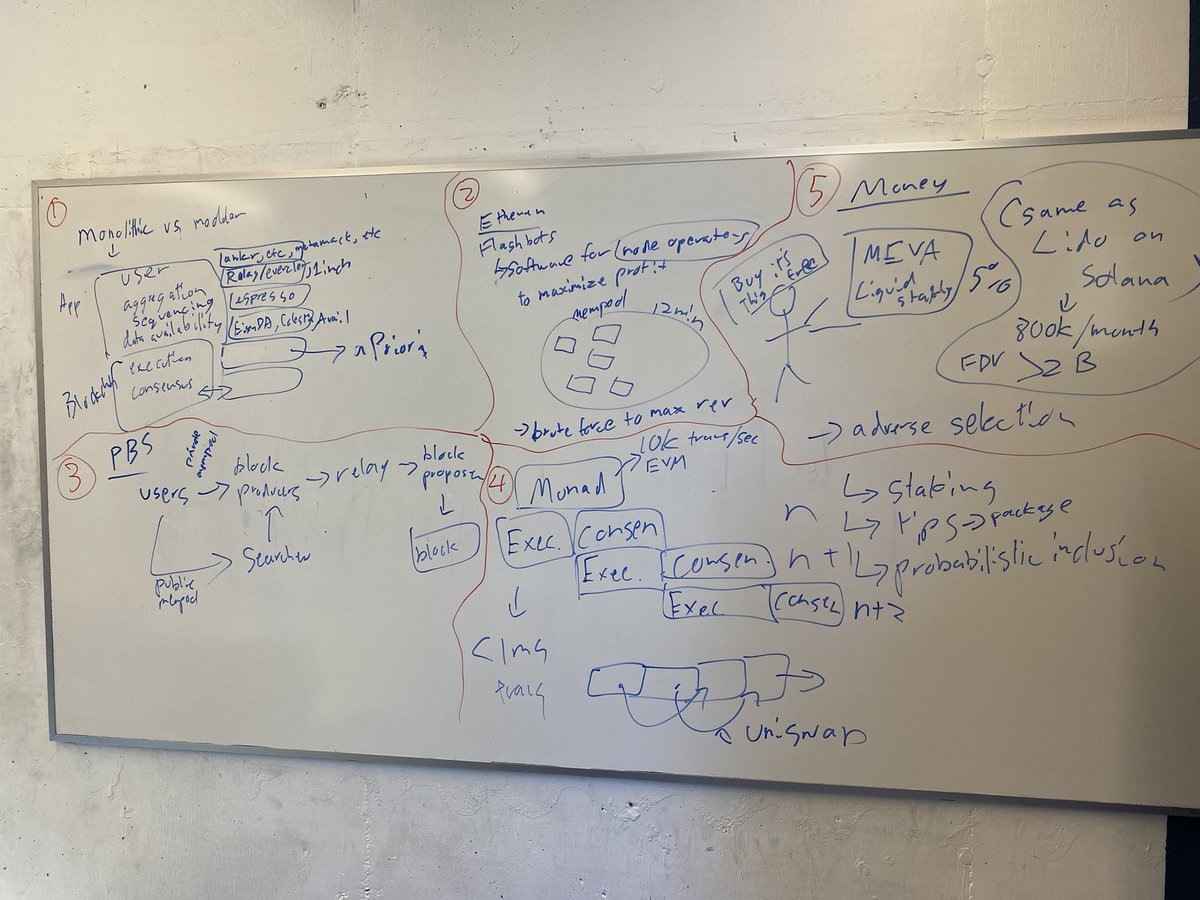 ①
Monolithic vs modular
user
ankr, etc, metamask, etc
App
aggregation
sequencing
data availability
1inch
espresso
EigenDA, Celestia, Avail
execution
→ aPriori
consensus
②
Flashbots
↳ software for node operators
to maximize profit
mempool
12 min
→ brute force to max rev
③
PBS
private
mempool
users → block
producers
→ relay → block
proposer
block
searcher
public
mempool
④
Monad
→ 10k trans/sec
EVM
Exec. Consen n
Exec. Consen. n+1
Exec Consen n+2
< 1ms
uniswap
⑤
Money
Buy
this
it's
free
MEVA
Liquid
5%
(same as
Lido on
Solana
800k/month
FDV > 2 B
→ adverse selection
↳ staking
↳ tips → package
↳ probabilistic inclusion